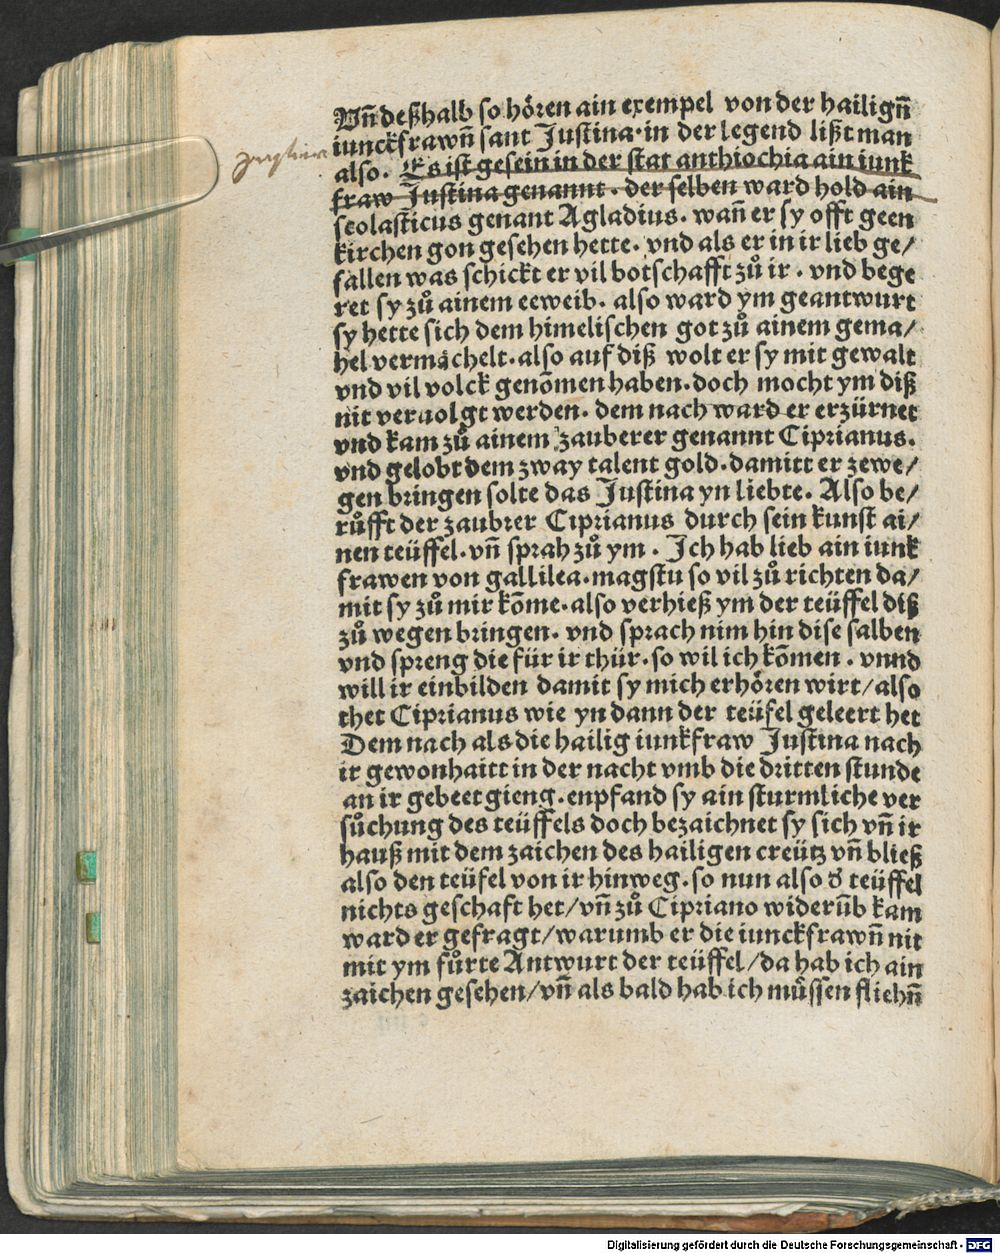 Vñ deßhalb so hören ain exempel von der hailigñ
iunckfrawñ sant Justina·in der legend lißt man
also. Es ist gesein in der stat anthiochia ain iunk
fraw Justina genannt. der selben ward hold ain
scolasticus genant Agladius. wañ er sy offt geen
kirchen gon gesehen hette. vnd als er in ir lieb ge/
fallen was schickt er vil botschafft zů ir. vnd bege
ret sy zů ainem eeweib. also ward ym geantwurt
sy hette sich dem himelischen got zů ainem gema/
hel vermåchelt. also auf diß wolt er sy mit gewalt
vnd vil volck genõmen haben. doch mocht ym diß
nit veruolgt werden. dem nach ward er erzürnet
vnd kam zů ainem zauberer genannt Ciprianus.
vnd gelobt dem zway talent gold. damitt er zewe/
gen bringen solte das Justina yn liebte. Also be/
růfft der zaubrer Ciprianus durch sein kunst ai/
nen teüffel. vñ sprah zů ym. Ich hab lieb ain iunk
frawen von gallilea. magstu so vil zů richten da/
mit sy zů mir kõme. also verhieß ym der teüffel diß
zů wegen bringen. vnd sprach nim hin dise salben
vnd spreng die für ir thür. so wil ich kõmen. vnnd
will ir einbilden damit sy mich erhören wirt/also
thet Ciprianus wie yn dann der teüfel geleert het
Dem nach als die hailig iunkfraw Justina nach
ir gewonhaitt in der nacht vmb die dritten stunde
an ir gebeet gieng. enpfand sy ain sturmliche ver
sůchung des teüffels doch bezaichnet sy sich vñ ir
hauß mit dem zaichen des hailigen creütz vñ bließ
also den teüfel von ir hinweg. so nun also d̕ teüffel
nichts geschaft het/vñ zů Cipriano widerũb kam
ward er gefragt/warumb er die iunckfrawñ nit
mit ym fůrte Antwurt der teüffel/da hab ich ain
zaichen gesehen/vñ als bald hab ich müssen fliehñ
Digitalisierung gefördert durch die Deutsche Forschungsgemeinschaft - DFG